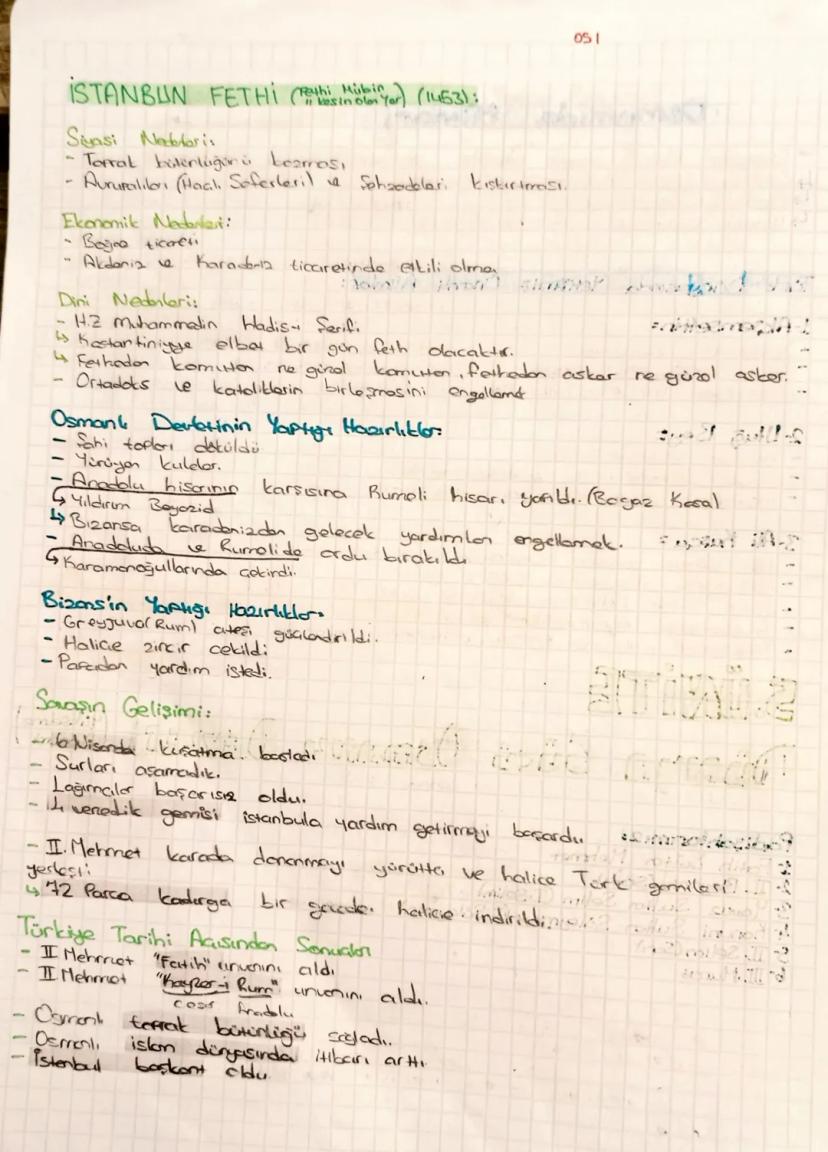 051
İSTANBUN FETHİ (Fethi Mübin "kesin olan yer) (1453):
Siyasi Nedenleri:
- Toprak bütünlüğünü bozması
- Avrupalıları (Haçlı Seferleri) ve Şehzadeleri kışkırtması.
Ekonomik Nedenleri:
- Boğaz ticareti
- Akdeniz ve Karadeniz ticaretinde etkili olma
Dini Nedenleri:
- H.Z Muhammedin Hadis-i Şerifi
↳ Kostantiniyye elbet bir gün feth olacaktır.
↳ Fetheden komutan ne güzel komutan, fetheden asker ne güzel asker.
- Ortadoks ve katoliklerin birleşmesini engellemek
Osmanlı Devletinin Yaptığı Hazırlıklar:
- Şahi topları döküldü
- Yürüyen kuleler.
- Anadolu hisarının karşısına Rumeli hisarı yapıldı. (Boğaz Kesen)
↳ Yıldırım Beyazid
↳ Bizansa karadenizden gelecek yardımları engellemek.
- Anadoluda ve Rumelide ordu bırakıldı
↳ Karamanoğullarında çekindi.
Bizans'ın Yaptığı Hazırlıklar:
- Greyjuva (Rum) ateşi güçlendirildi.
- Halice zincir çekildi
- Papadan yardım istedi.
Savaşın Gelişimi:
- 6 Nisanda kuşatma başladı
- Surları aşamadık.
- Lağımcılar başarısız oldu.
- 4 venedik gemisi istanbula yardım getirmeyi başardı
- II. Mehmet karada donanmayı yürüttü ve halice Türk gemileri
yerleşti
↳ 72 Parça kadırga bir gecede halice indirildi.
Türkiye Tarihi Açısından Sonuçlar
- II Mehmet "Fatih" unvanını aldı
- II Mehmet "Kayzer-i Rum" unvanını aldı.
Anadolu
- Osmanlı toprak bütünlüğü sağladı.
- Osmanlı islam dünyasında itibarı arttı
- İstanbul başkent oldu